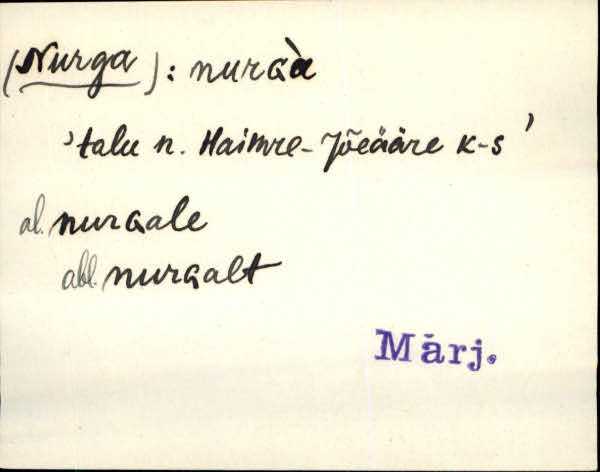 (Nurga) : nurɢà
'talu n. Haimre-Jõeääre k-s'
al. nurɢale
abl. nurɢalt
Märj.